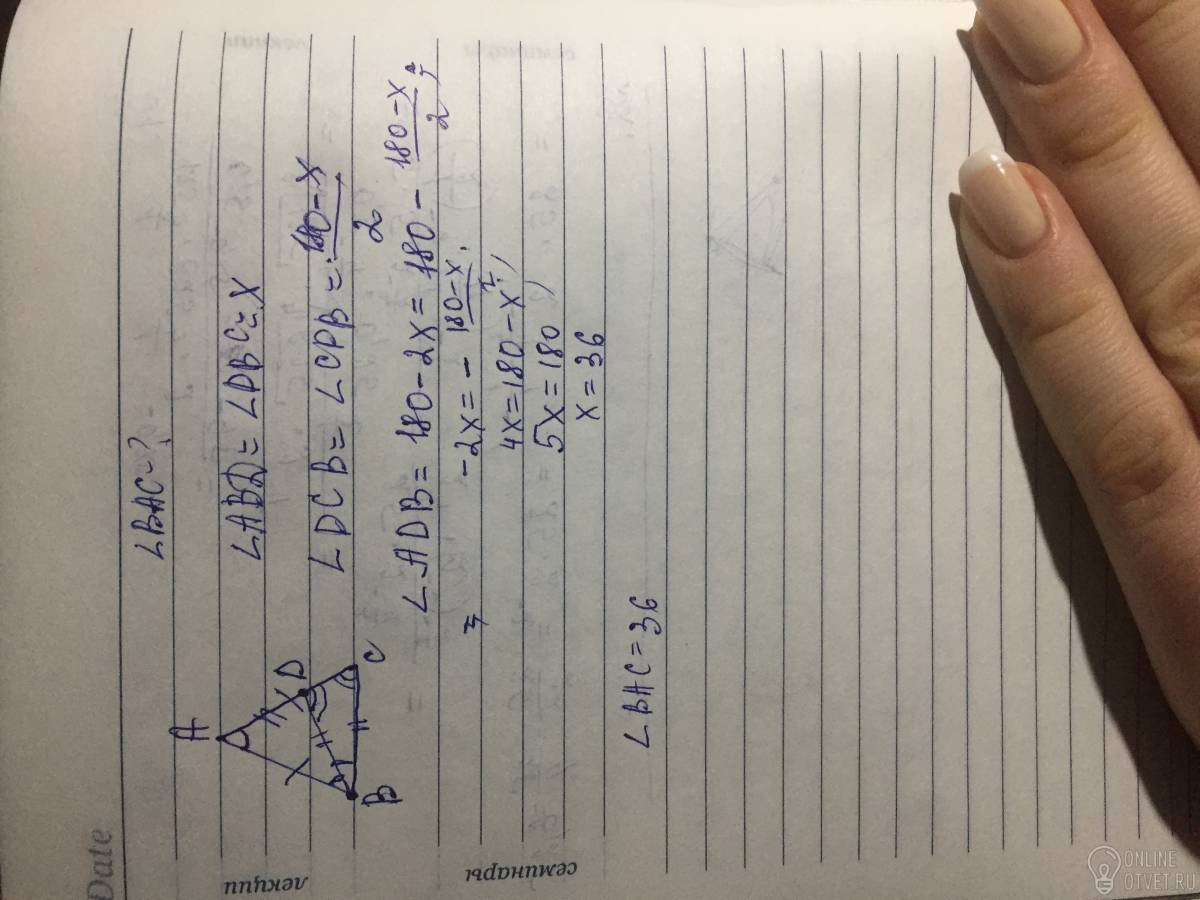 Date
лекции
семинары
∠BAC=?
A
D
B
C
∠ABD=∠DBC=X
∠DCB=∠CDB=180-X/2
∠ADB=180-2X=180-180-X/2,
-2X=-180-X/2
4X=180-X,
5X=180,
X=36
∠BAC=36
ONLINE
OTVET.RU